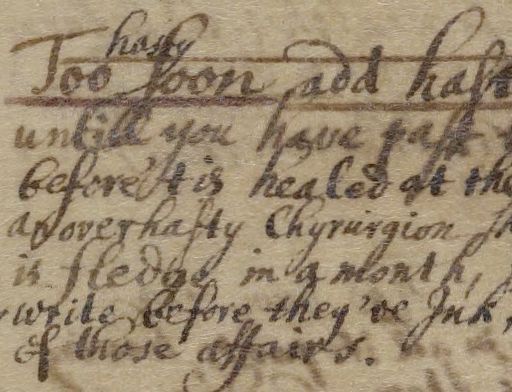 hasty
Too soon add hast
untill you have past
before 't is healed at the
an overhasty Chyrurgion
is fledge in a month,
write before they've Ink,
of those affairs.